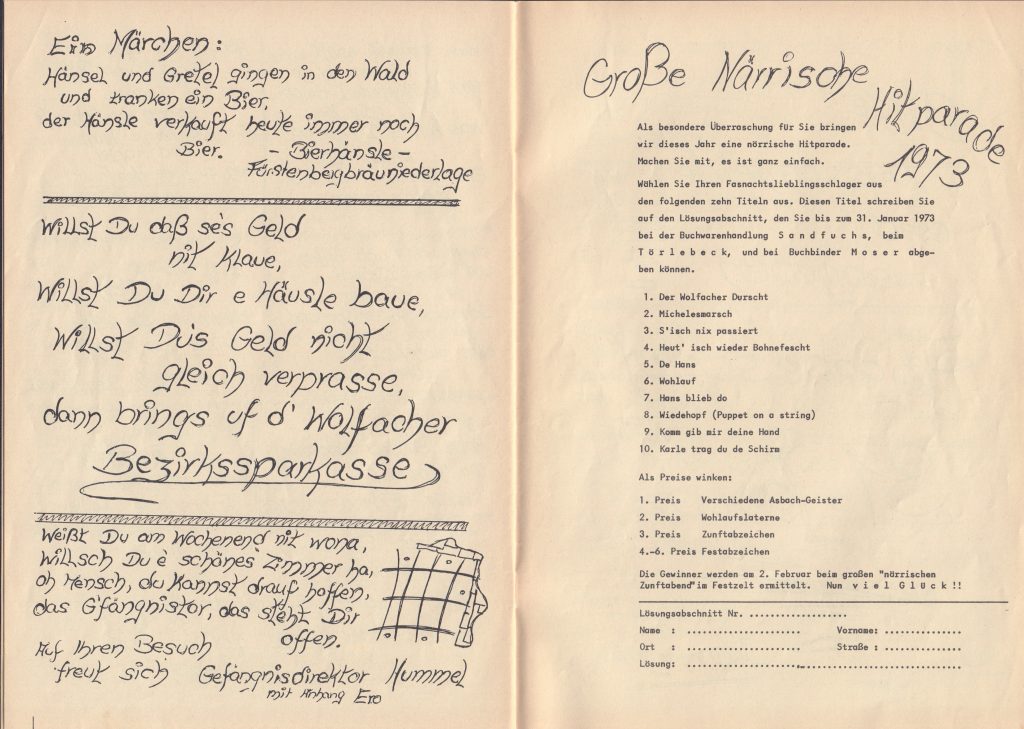 Ein Märchen:
Hänsel und Gretel gingen in den Wald
und tranken ein Bier,
der Hänsle verkauft heute immer noch
Bier. - Bierhänsle -
Fürstenbergbräuniederlage
Willst Du daß se's Geld
nit klaue,
Willst Du Dir e Häusle baue,
Willst Du's Geld nicht
gleich verprasse,
dann brings uf d' Wolfacher
Bezirkssparkasse
Weißt Du am Wochenend nit wona,
willsch Du è schönes Zimmer ha,
oh Mensch, du kannst drauf hoffen,
das G'fängnistor, das steht Dir
offen.
Auf Ihren Besuch
freut sich Gefängnisdirektor Hummel
mit Anhang Ero
Große Närrische
Hitparade
1973
Als besondere Überraschung für Sie bringen
wir dieses Jahr eine nörrische Hitparade.
Machen Sie mit, es ist ganz einfach.
Wählen Sie Ihren Fasnachtslieblingsschlager aus
den folgenden zehn Titeln aus. Diesen Titel schreiben Sie
auf den Lösungsabschnitt, den Sie bis zum 31. Januar 1973
bei der Buchwarenhandlung S a n d f u c h s, beim
T ö r l e b e c k, und bei Buchbinder M o s e r abge-
ben können.
1. Der Wolfacher Durscht
2. Michelesmarsch
3. S'isch nix passiert
4. Heut' isch wieder Bohnefescht
5. De Hans
6. Wohlauf
7. Hans blieb do
8. Wiedehopf (Puppet on a string)
9. Komm gib mir deine Hand
10. Karle trag du de Schirm
Als Preise winken:
1. Preis Verschiedene Asbach-Geister
2. Preis Wohlaufslaterne
3. Preis Zunftabzeichen
4.-6. Preis Festabzeichen
Die Gewinner werden am 2. Februar beim großen "närrischen
Zunftabend"im Festzelt ermittelt. Nun v i e l G l ü c k !!
Lösungsabschnitt Nr. ..................
Name : ....................... Vorname: ...............
Ort : ....................... Straße : ...............
Lösung: ......................................................